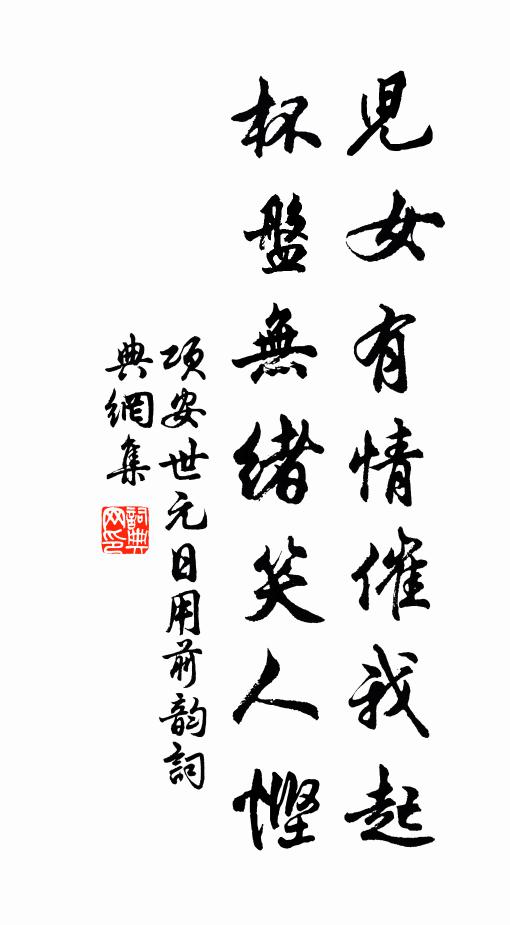 兒女有情催我起
杯盤無緒笑人慳
項安世元日用前韵詞
典網集
詞典網印